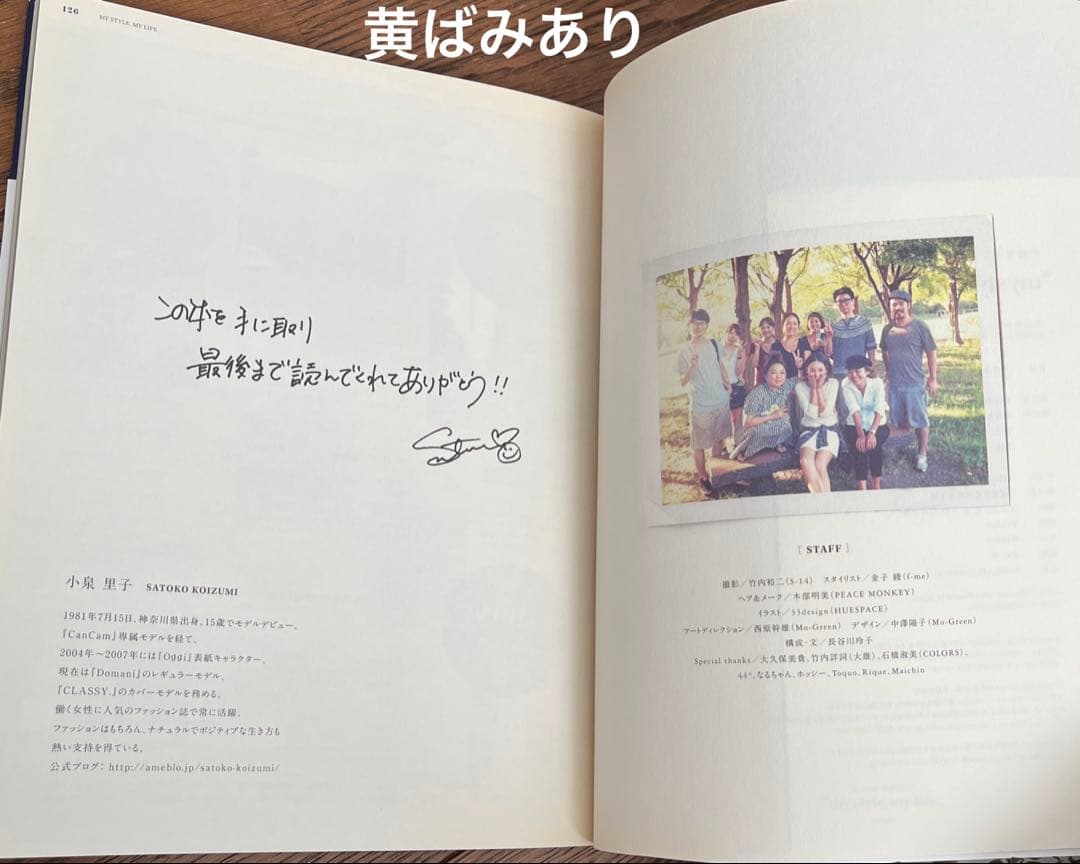 黄ばみあり
126
MY STYLE, MY LIFE
この本を手に取り
最後まで読んでくれてありがとう!!
小泉 里子 SATOKO KOIZUMI
1981年7月15日、神奈川県出身。15歳でモデルデビュー。
『CanCam』専属モデルを経て、
2004年〜2007年には『Oggi』表紙キャラクター、
現在は『Domani』のレギュラーモデル、
『CLASSY.』のカバーモデルを務める。
働く女性に人気のファッション誌で常に活躍。
ファッションはもちろん、ナチュラルでポジティブな生き方も
熱い支持を得ている。
公式ブログ：http://ameblo.jp/satoko-koizumi/
[ STAFF ]
撮影／竹内裕二(S-14) スタイリスト／金子 綾(f-me)
ヘア&メーク／木部明美(PEACE MONKEY)
イラスト／33design(HUESPACE)
アートディレクション／西原幹雄(Mo-Green) デザイン／中澤陽子(Mo-Green)
構成・文／長谷川玲子
Special thanks／大久保美貴、竹内詳詞(大雄)、石橋淑美(COLORS)、
44°、なるちゃん、ホッシー、Toquo、Rique、Maichin